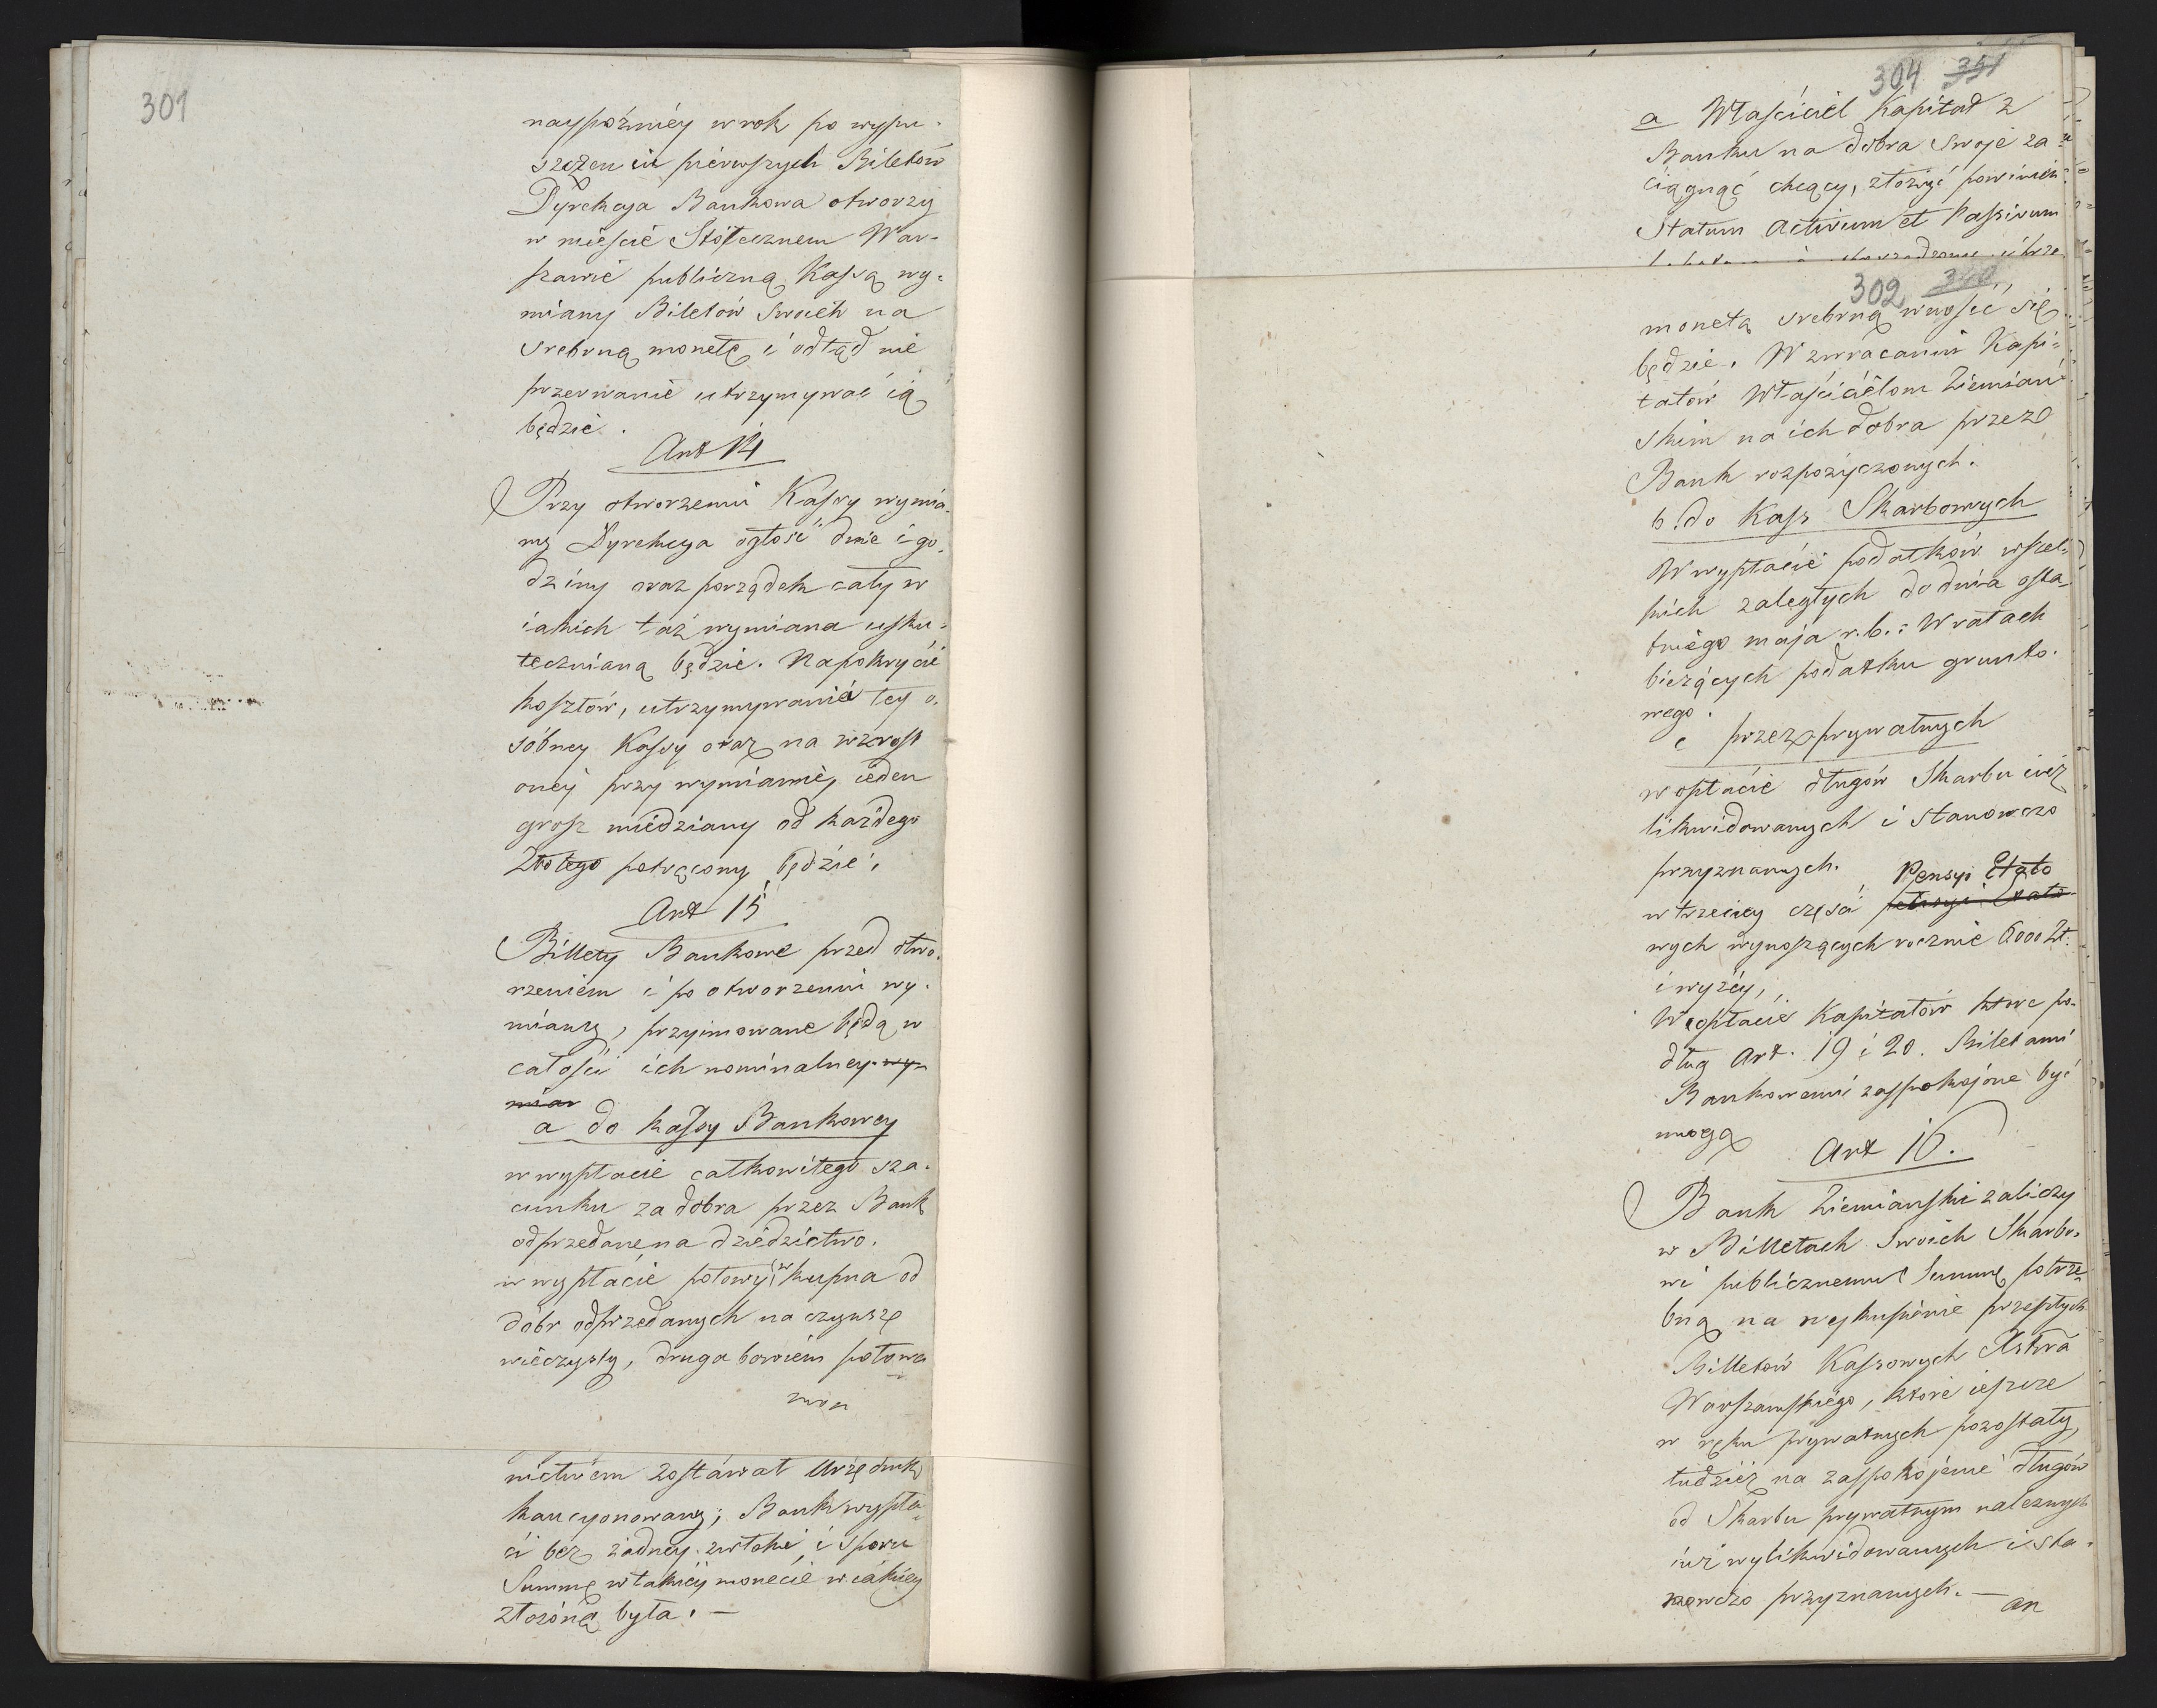 301
naypóźniéy w rok po wypu-
szczeniu pierwszych Biletów
Dyrekcya Bankowa otworzy
w mieście Stołecznem War-
szawie publiczną Kassą wy-
miany Biletów swoich na
srebrną monetę i odtąd nie
przerwanie utrzymywać ią
będzie.
Art 14
Przy otworzeniu Kassy wymia-
ny Dyrekcya ogłosi dnie i go-
dziny oraz porządek cały w
iakich taż wymiana usku-
teczniana będzie. Na pokrycie
kosztów, utrzymywania tey o-
sóbney Kassy oraz na wzrost
oney przy wymianie, ieden
grosz miedziany od każdego
Złotego potrącony będzie.
Art 15
Billety Bankowe przed otwo-
rzeniem i po otworzeniu wy-
miany, przyimowane będą w
całości ich nominalney wy-
mian
a do kassy Bankowey
w wypłacie całkowitego sza-
cunku za dobra przez Bank
odprzedane na dziedzictwo.
w wypłacie połowy w kupna od
dóbr odprzedanych na czynsze
wieczysty, druga bowiem połowa
mon
nictwem zostáwał Urzędnik
kaucyonowany; Bank wypła-
ci bez żadney zwłoki i sporu
Summę w takiéy monecie w iakiéy
złożóną była. —
304 351
a Właściciel Kapitał z
Banku na dobra swoje za-
ciągnąć chcący, złożyć powinien
Statum Activum et Passivum
302 340
monetą srebrną wnosić się
będzie. W zwracaniu Kapi-
tałów Właścicielom Ziemiań-
skim na ich dobra przez
Bank rozpożyczonych.
b. do Kass Skarbowych
W wypłacie podatków wszel-
kich zaległych do dnia osta-
tniego maja r.b.: W ratach
bieżących podatku grunto-
wego.
c przez prywatnych
w opłacie długów Skarbu iuż
likwidowanych i stanowczo
przyznanych.
Pensyi Etato
w trzeciey części pensyi Etato
wych wynoszących rocznie 6000 Zł.
i wyżéy,
W opłacie Kapitałów które po-
dług Art. 19 i 20. Biletami
Bankowemi zaspokojone być
mogą
Art 16.
Bank Ziemiański zaliczy
w Billetach Swoich Skarbo-
wi publicznemu Summę potrze-
bną na wykupienie przeszłych
Billetów Kassowych Xstwa
Warszawskiego, które ieszcze
w ręku prywatnych pozostały,
tudzież na zaspokojenie długów
od Skarbu prywatnym należnych
iuż wylikwidowanych i sta-
nowczo przyznanych. —
an